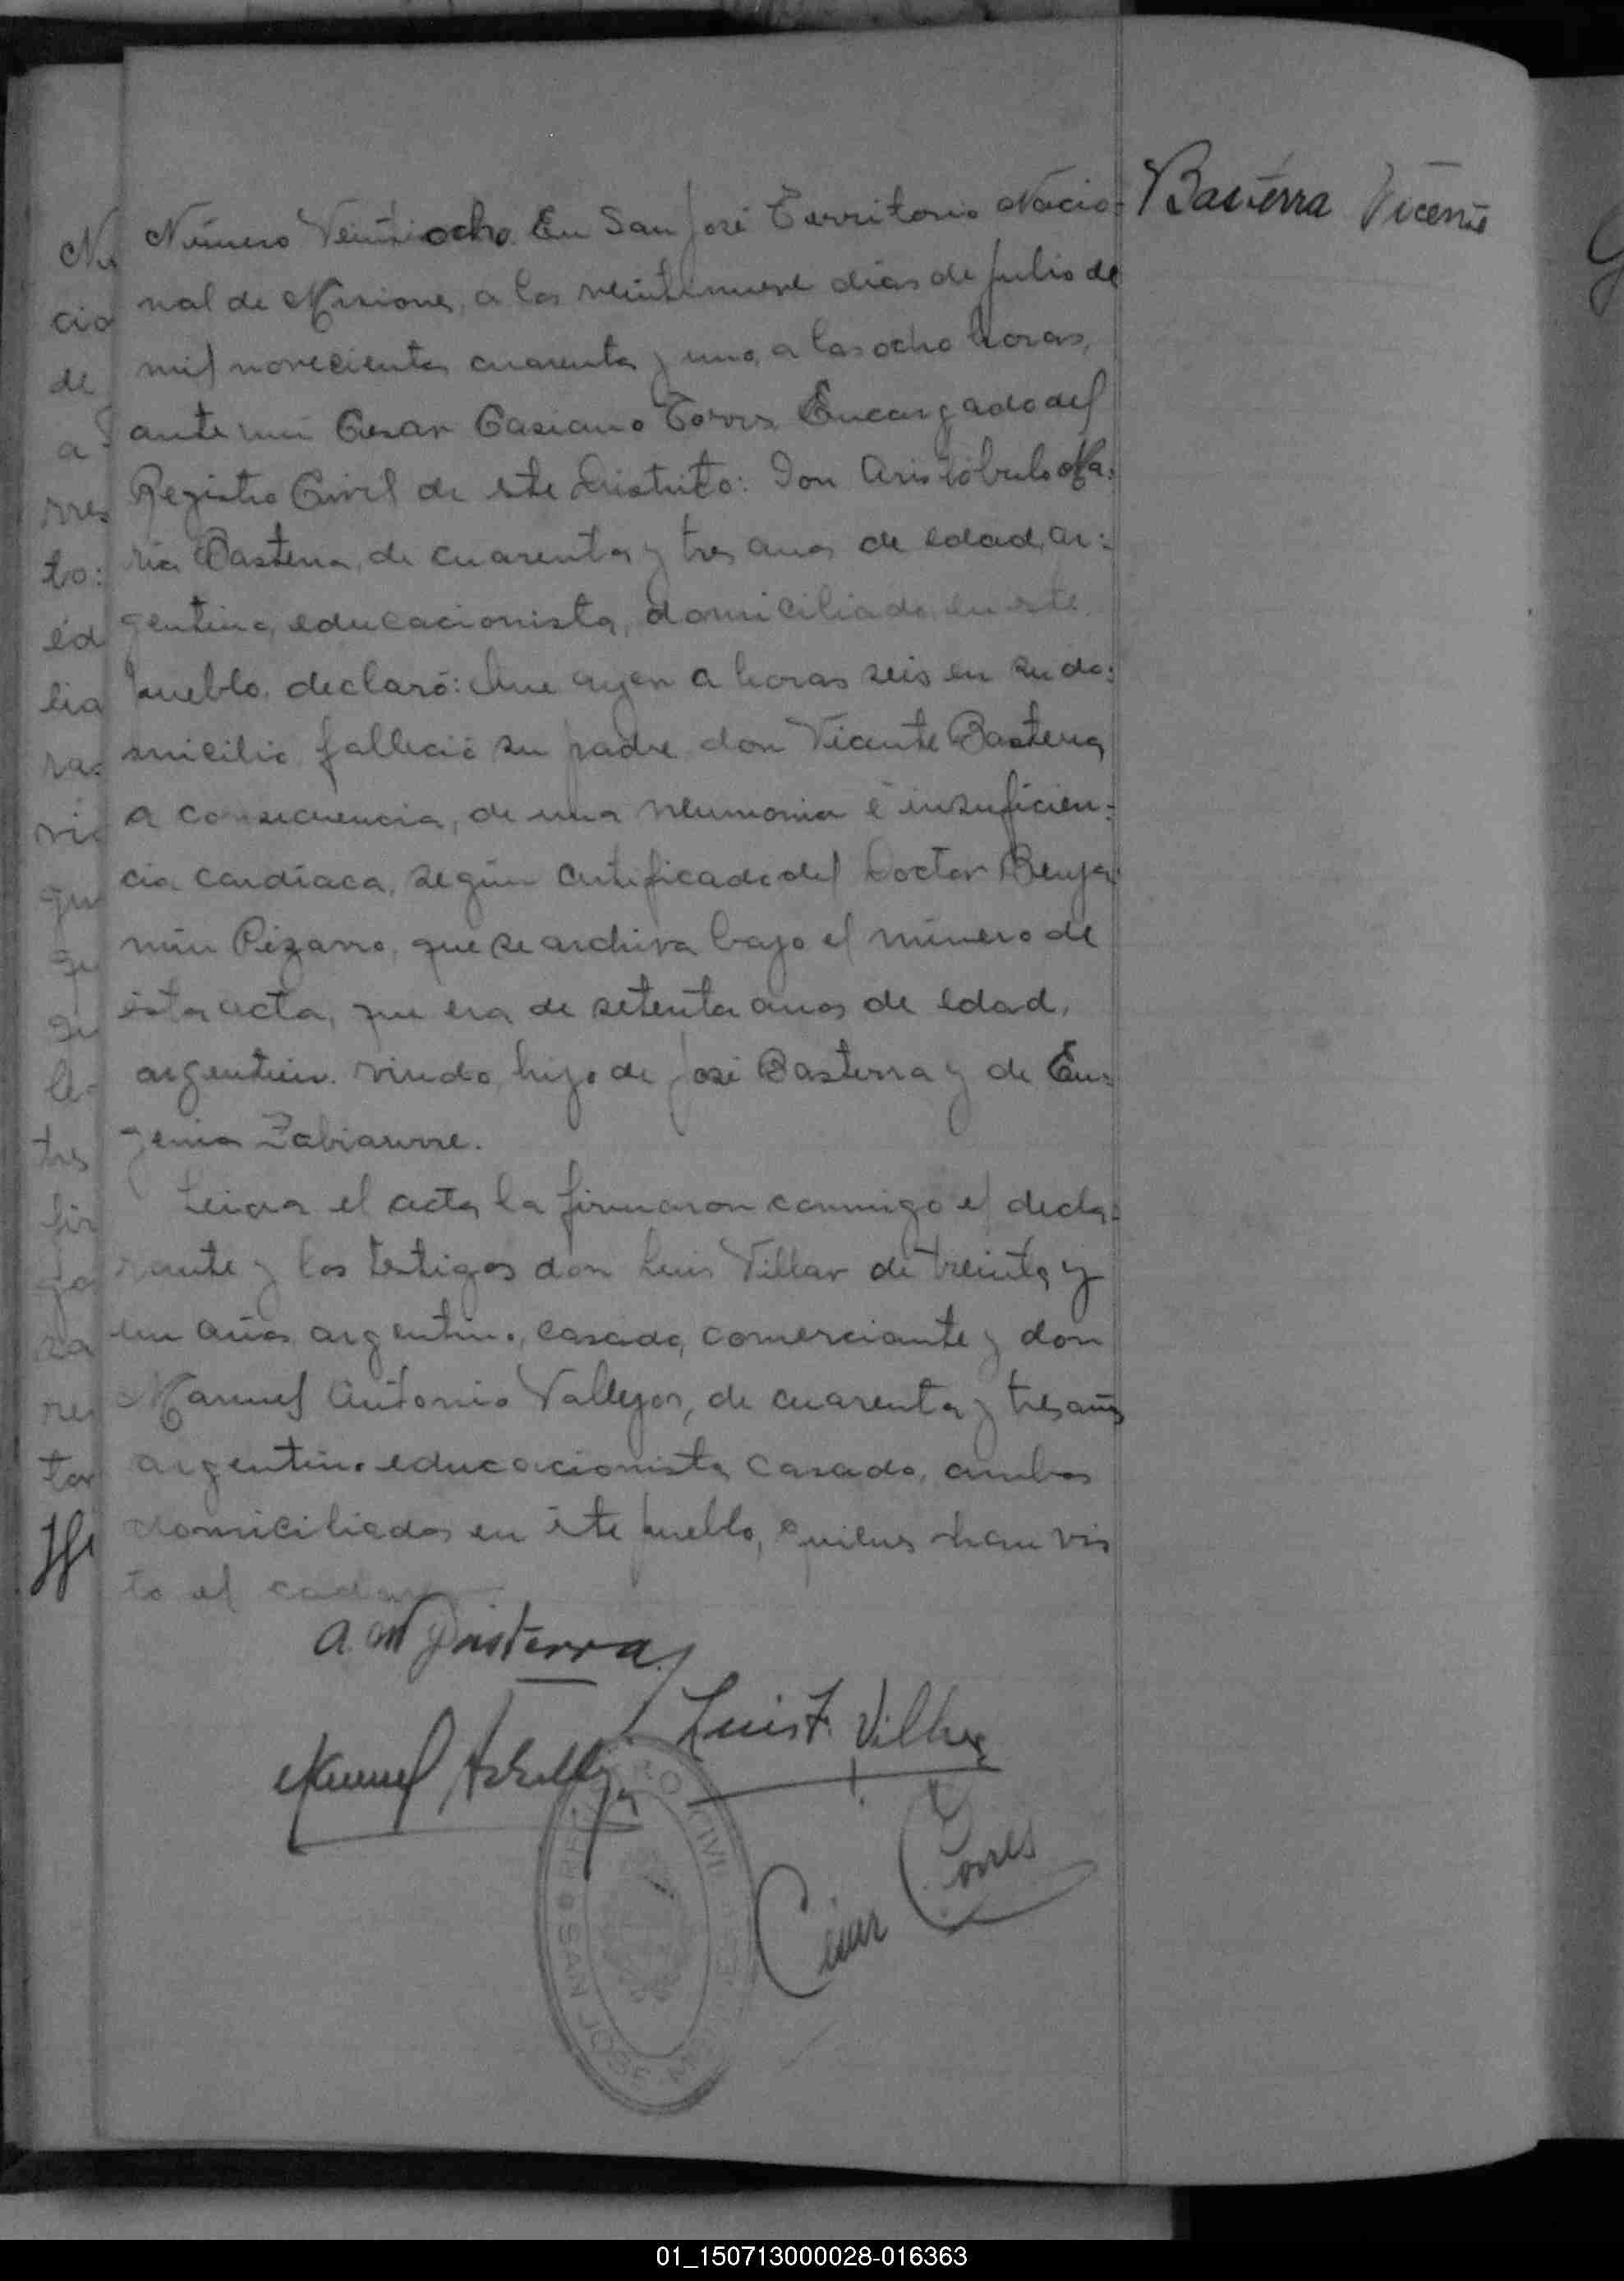 Basterra Vicente
Número Veintiocho. En San José Territorio Nacio=
nal de Misiones, a los veintinueve dias de Julio de
mil novecientos cuarenta y uno, a las ocho horas,
ante mi Cesar Casiano Torres Encargado del
Registro Civil de este Distrito: Don Aristóbulo Ma=
ria Basterra, de cuarenta y tres anos de edad, ar=
gentino, educacionista, domiciliado en este
pueblo, declaró: Que ayer a horas seis en su do=
micilio falleció su padre don Vicente Basterra
a consecuencia, de una neumonia é insuficien=
cia cardíaca, según certificado del Doctor Benja
min Pizarro, que se archiva bajo el número de
ésta acta, que era de setenta anos de edad,
argentino. viudo, hijo de José Basterra y de Eu=
genia Zabiaurre.
Leida el acta la firmaron conmigo el decla=
rante y los testigos don Luis Villar de treinta y
un años argentino, casado, comerciante y don
Manuel Antonio Vallejos, de cuarenta y tres años
argentino educacionista casado, ambos
domiciliados en éste pueblo, quienes han vis
to el
A. M Basterra
Luis F. Villar
Manuel
César Torres
SAN JOSE
01_150713000028-016363